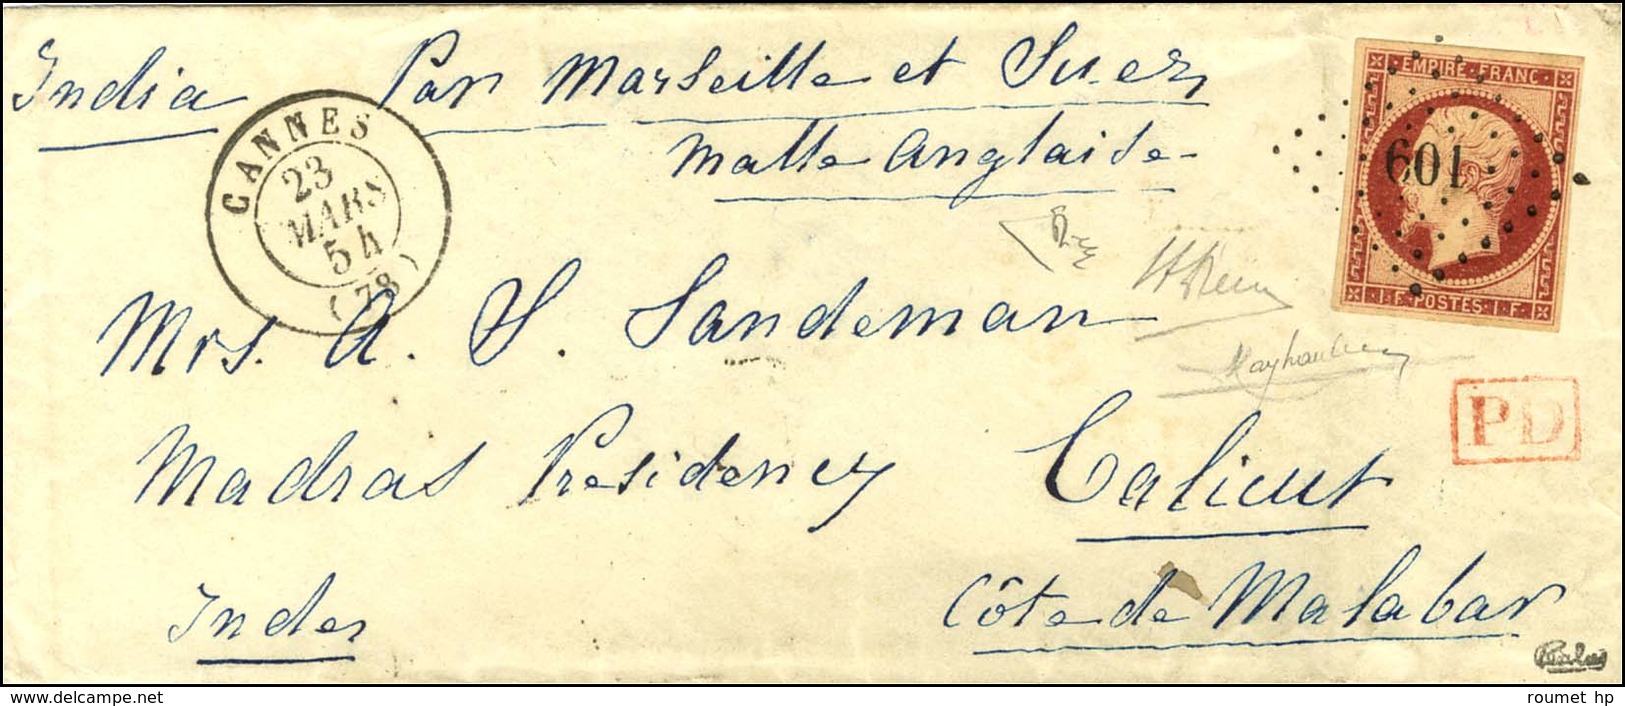 India Par Marseille et Suez
Malle Anglaise
CANNES
23
MARS
54
(78)
EMPIRE FRANC
601
1 F. POSTES 1 F.
Mrs. A. S. Sandeman
PD
Madras Presidency Calicut
Indes Côte de Malabar
Calves
www.delcampe.net roumet hp